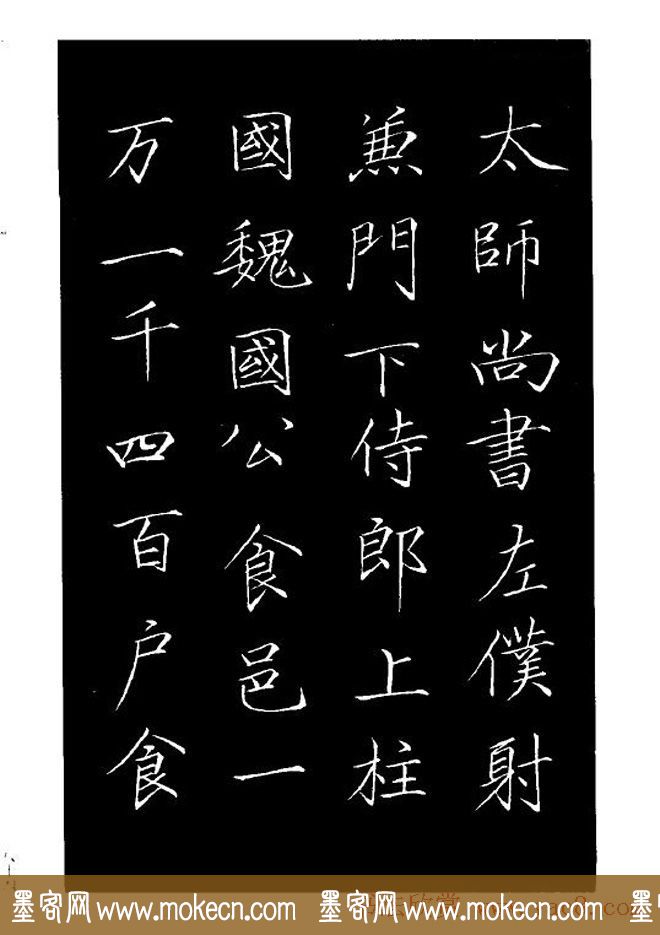 太師尚書左僕射
兼門下侍郎上柱
國魏國公食邑一
万一千四百户食
墨客网 www.mokecn.com 墨客网 www.mokecn.com 墨客